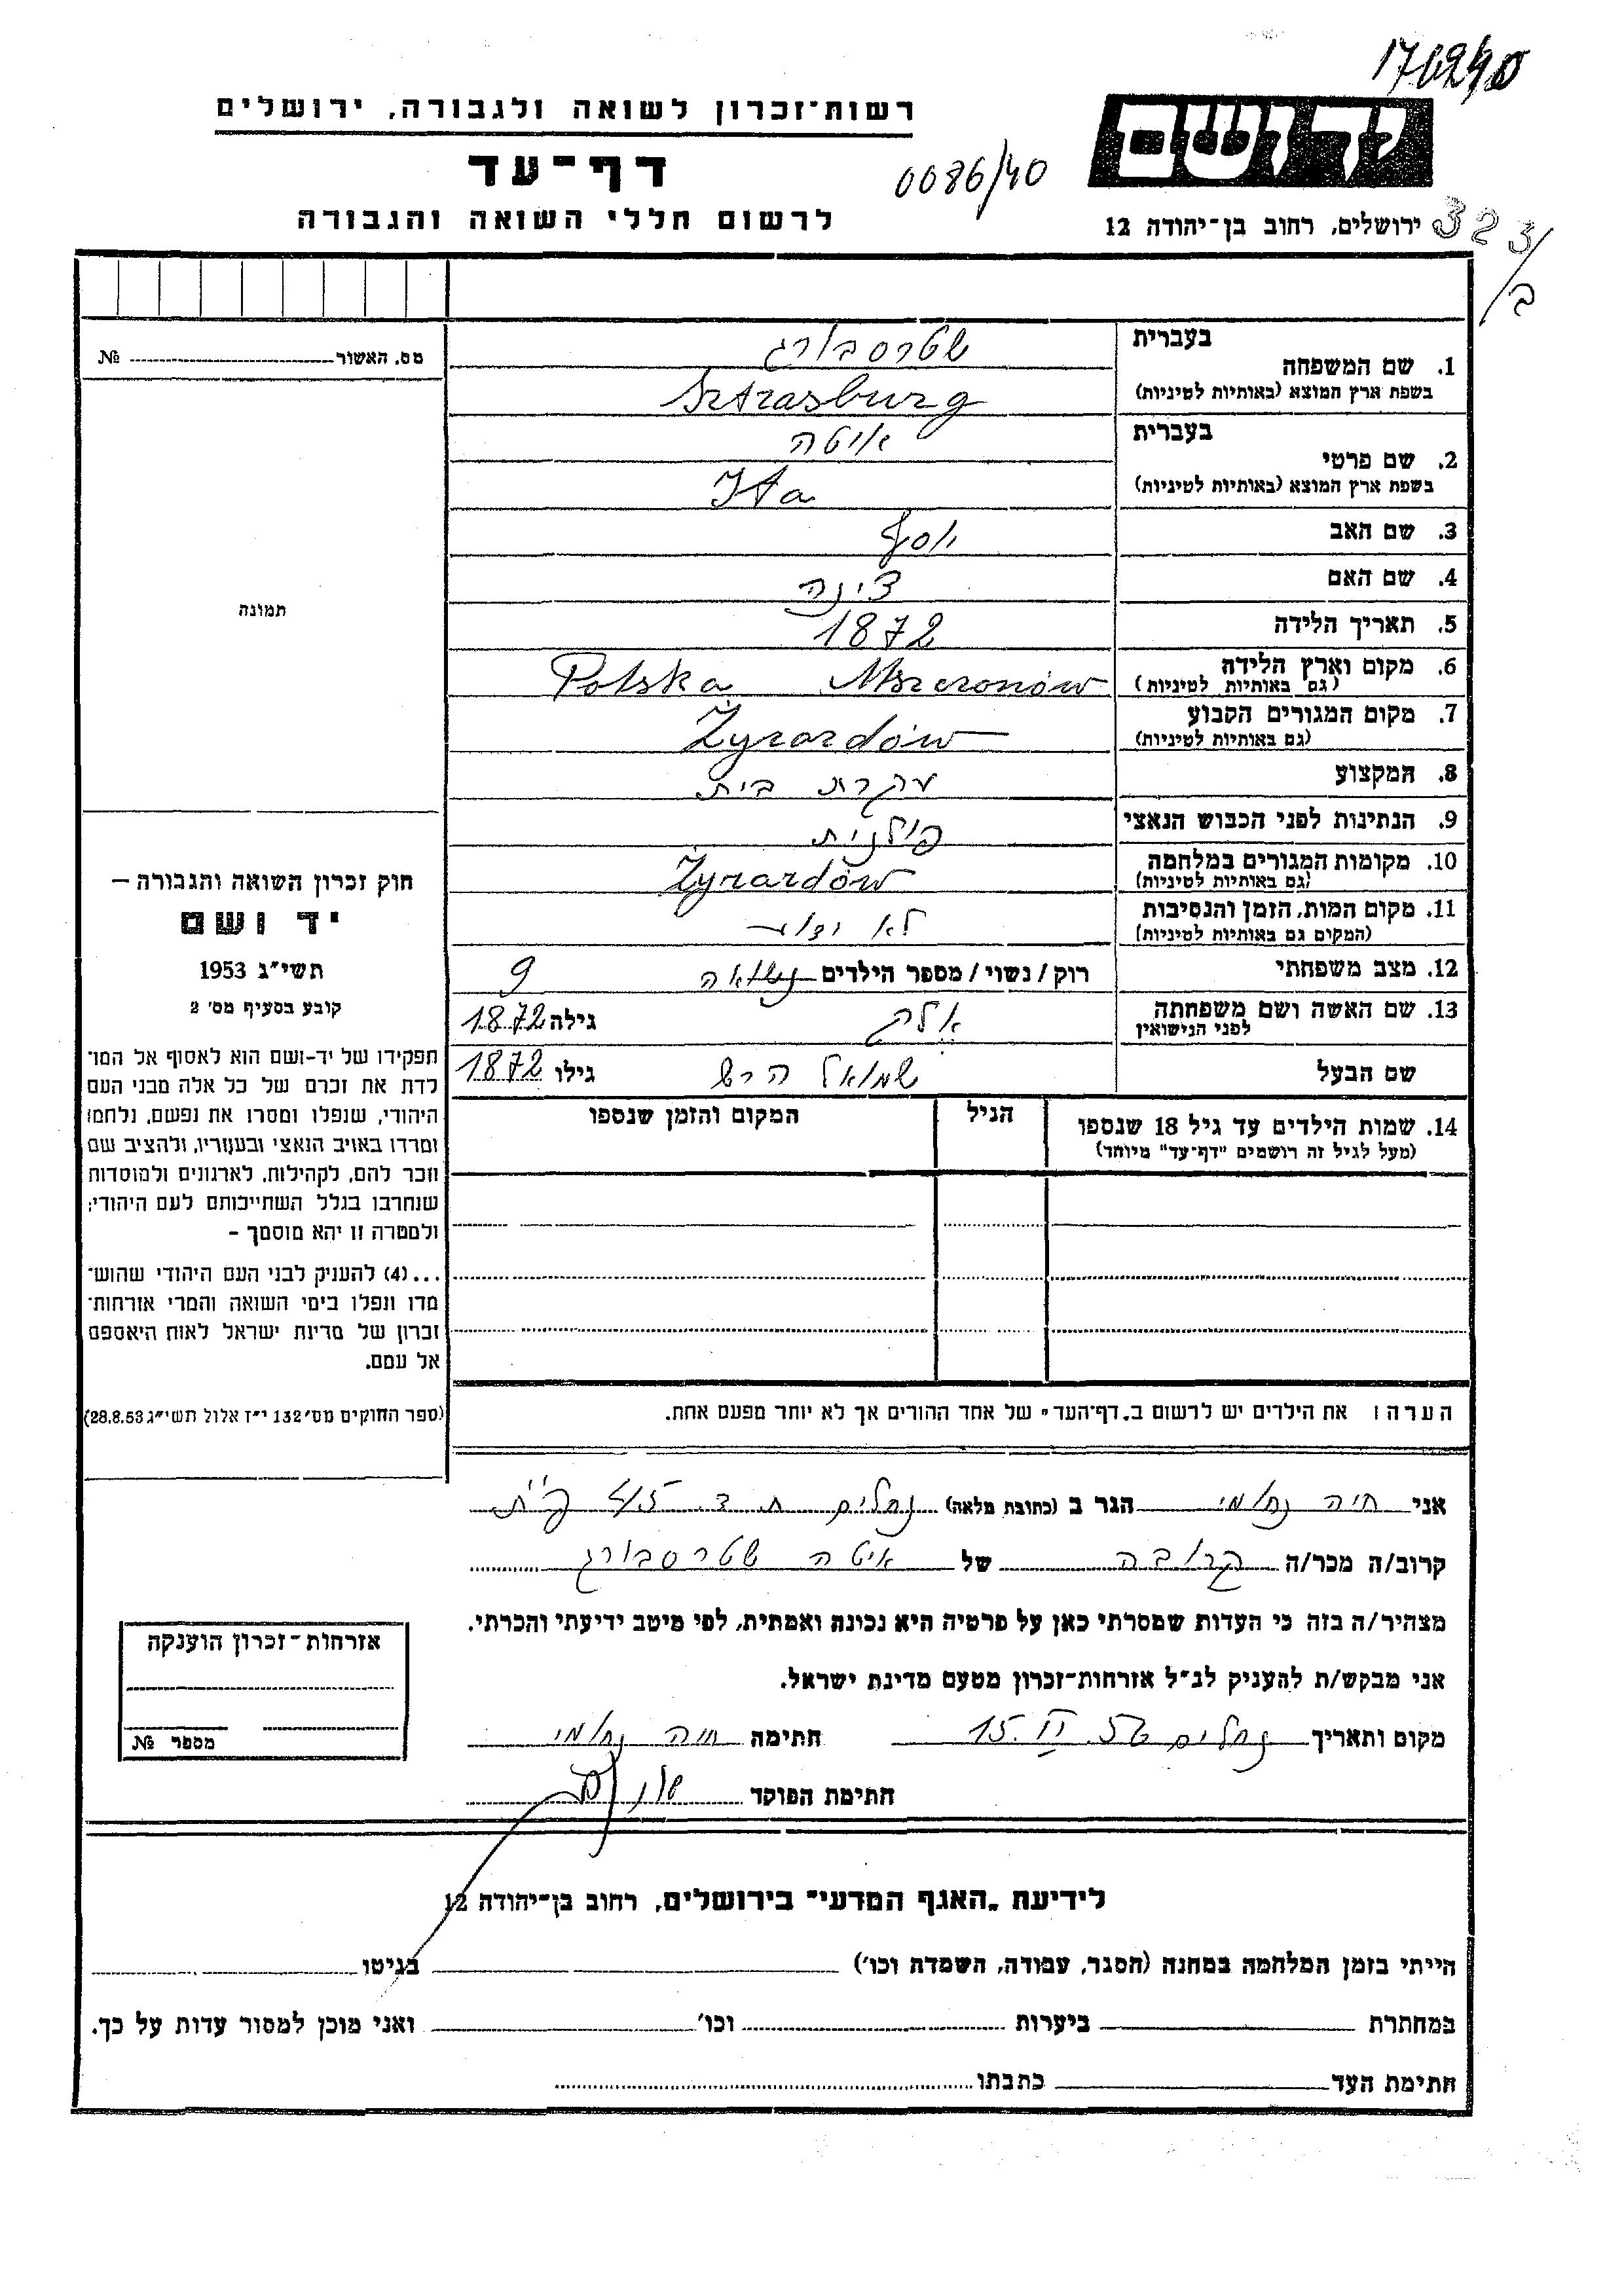 רשות־זכרון לשואה ולגבורה, ירושלים
דף־עד
לרשום חללי השואה והגבורה
0086/40
ידושם
ירושלים, רחוב בן־יהודה 12
323/ב
מס. האשור № 
בעברית
1. שם המשפחה שטרסבורג
בשפת ארץ המוצא (באותיות לטיניות) Sztrasburg
בעברית
2. שם פרטי איטה
בשפת ארץ המוצא (באותיות לטיניות) Ita
3. שם האב יוסף
4. שם האם דינה
5. תאריך הלידה 1872
6. מקום וארץ הלידה Polska Mszczonów
(גם באותיות לטיניות)
7. מקום המגורים הקבוע Żyrardów
(גם באותיות לטיניות)
8. המקצוע עקרת בית
9. הנתינות לפני הכבוש הנאצי פולנית
10. מקומות המגורים במלחמה Żyrardów
(גם באותיות לטיניות)
11. מקום המות, הזמן והנסיבות לא ידוע
(המקום גם באותיות לטיניות)
12. מצב משפחתי רוק/נשוי/מספר הילדים נשואה 9
13. שם האשה ושם משפחתה גילה 1872
לפני הנישואין
שם הבעל שמואל הרש גילו 1872
14. שמות הילדים עד גיל 18 שנספו הגיל המקום והזמן שנספו
(מעל לגיל זה רושמים "דף־עד" מיוחד)
הערה: את הילדים יש לרשום ב„דף־העד" של אחד ההורים אך לא יותר מפעם אחת.
תמונה
חוק זכרון השואה והגבורה —
יד ושם
תשי"ג 1953
קובע בסעיף מס' 2
תפקידו של יד-ושם הוא לאסוף אל המו־
לדת את זכרם של כל אלה מבני העם
היהודי, שנפלו ומסרו את נפשם, נלחמו
ומרדו באויב הנאצי ובעוזריו, ולהציב שם
וזכר להם, לקהילות, לארגונים ולמוסדות
שנחרבו בגלל השתייכותם לעם היהודי;
ולמטרה זו יהא מוסמך –
...(4) להעניק לבני העם היהודי שהוש־
מדו ונפלו בימי השואה והמרי אזרחות־
זכרון של מדינת ישראל לאות היאספם
אל עמם.
(ספר החוקים מס' 132 י"ז אלול תשי"ג 28.8.53)
אני חיה נחומי הגר ב (כתובת מלאה) נחלים ת.ד. 415 פ"ת
קרוב/ה מכר/ה קרובה של איטה שטרסבורג
מצהיר/ה בזה כי העדות שמסרתי כאן על פרטיה היא נכונה ואמתית, לפי מיטב ידיעתי והכרתי.
אני מבקש/ת להעניק לנ"ל אזרחות-זכרון מטעם מדינת ישראל.
מקום ותאריך נחלים 15.II חתימה חיה נחומי
חתימת הפוקד
אזרחות־זכרון הוענקה
מספר №
לידיעת „האגף המדעי" בירושלים, רחוב בן־יהודה 12
הייתי בזמן המלחמה במחנה (הסגר, עבודה, השמדת וכו') בגיטו
במחתרת ביערות וכו' ואני מוכן למסור עדות על כך.
חתימת העד כתבתו